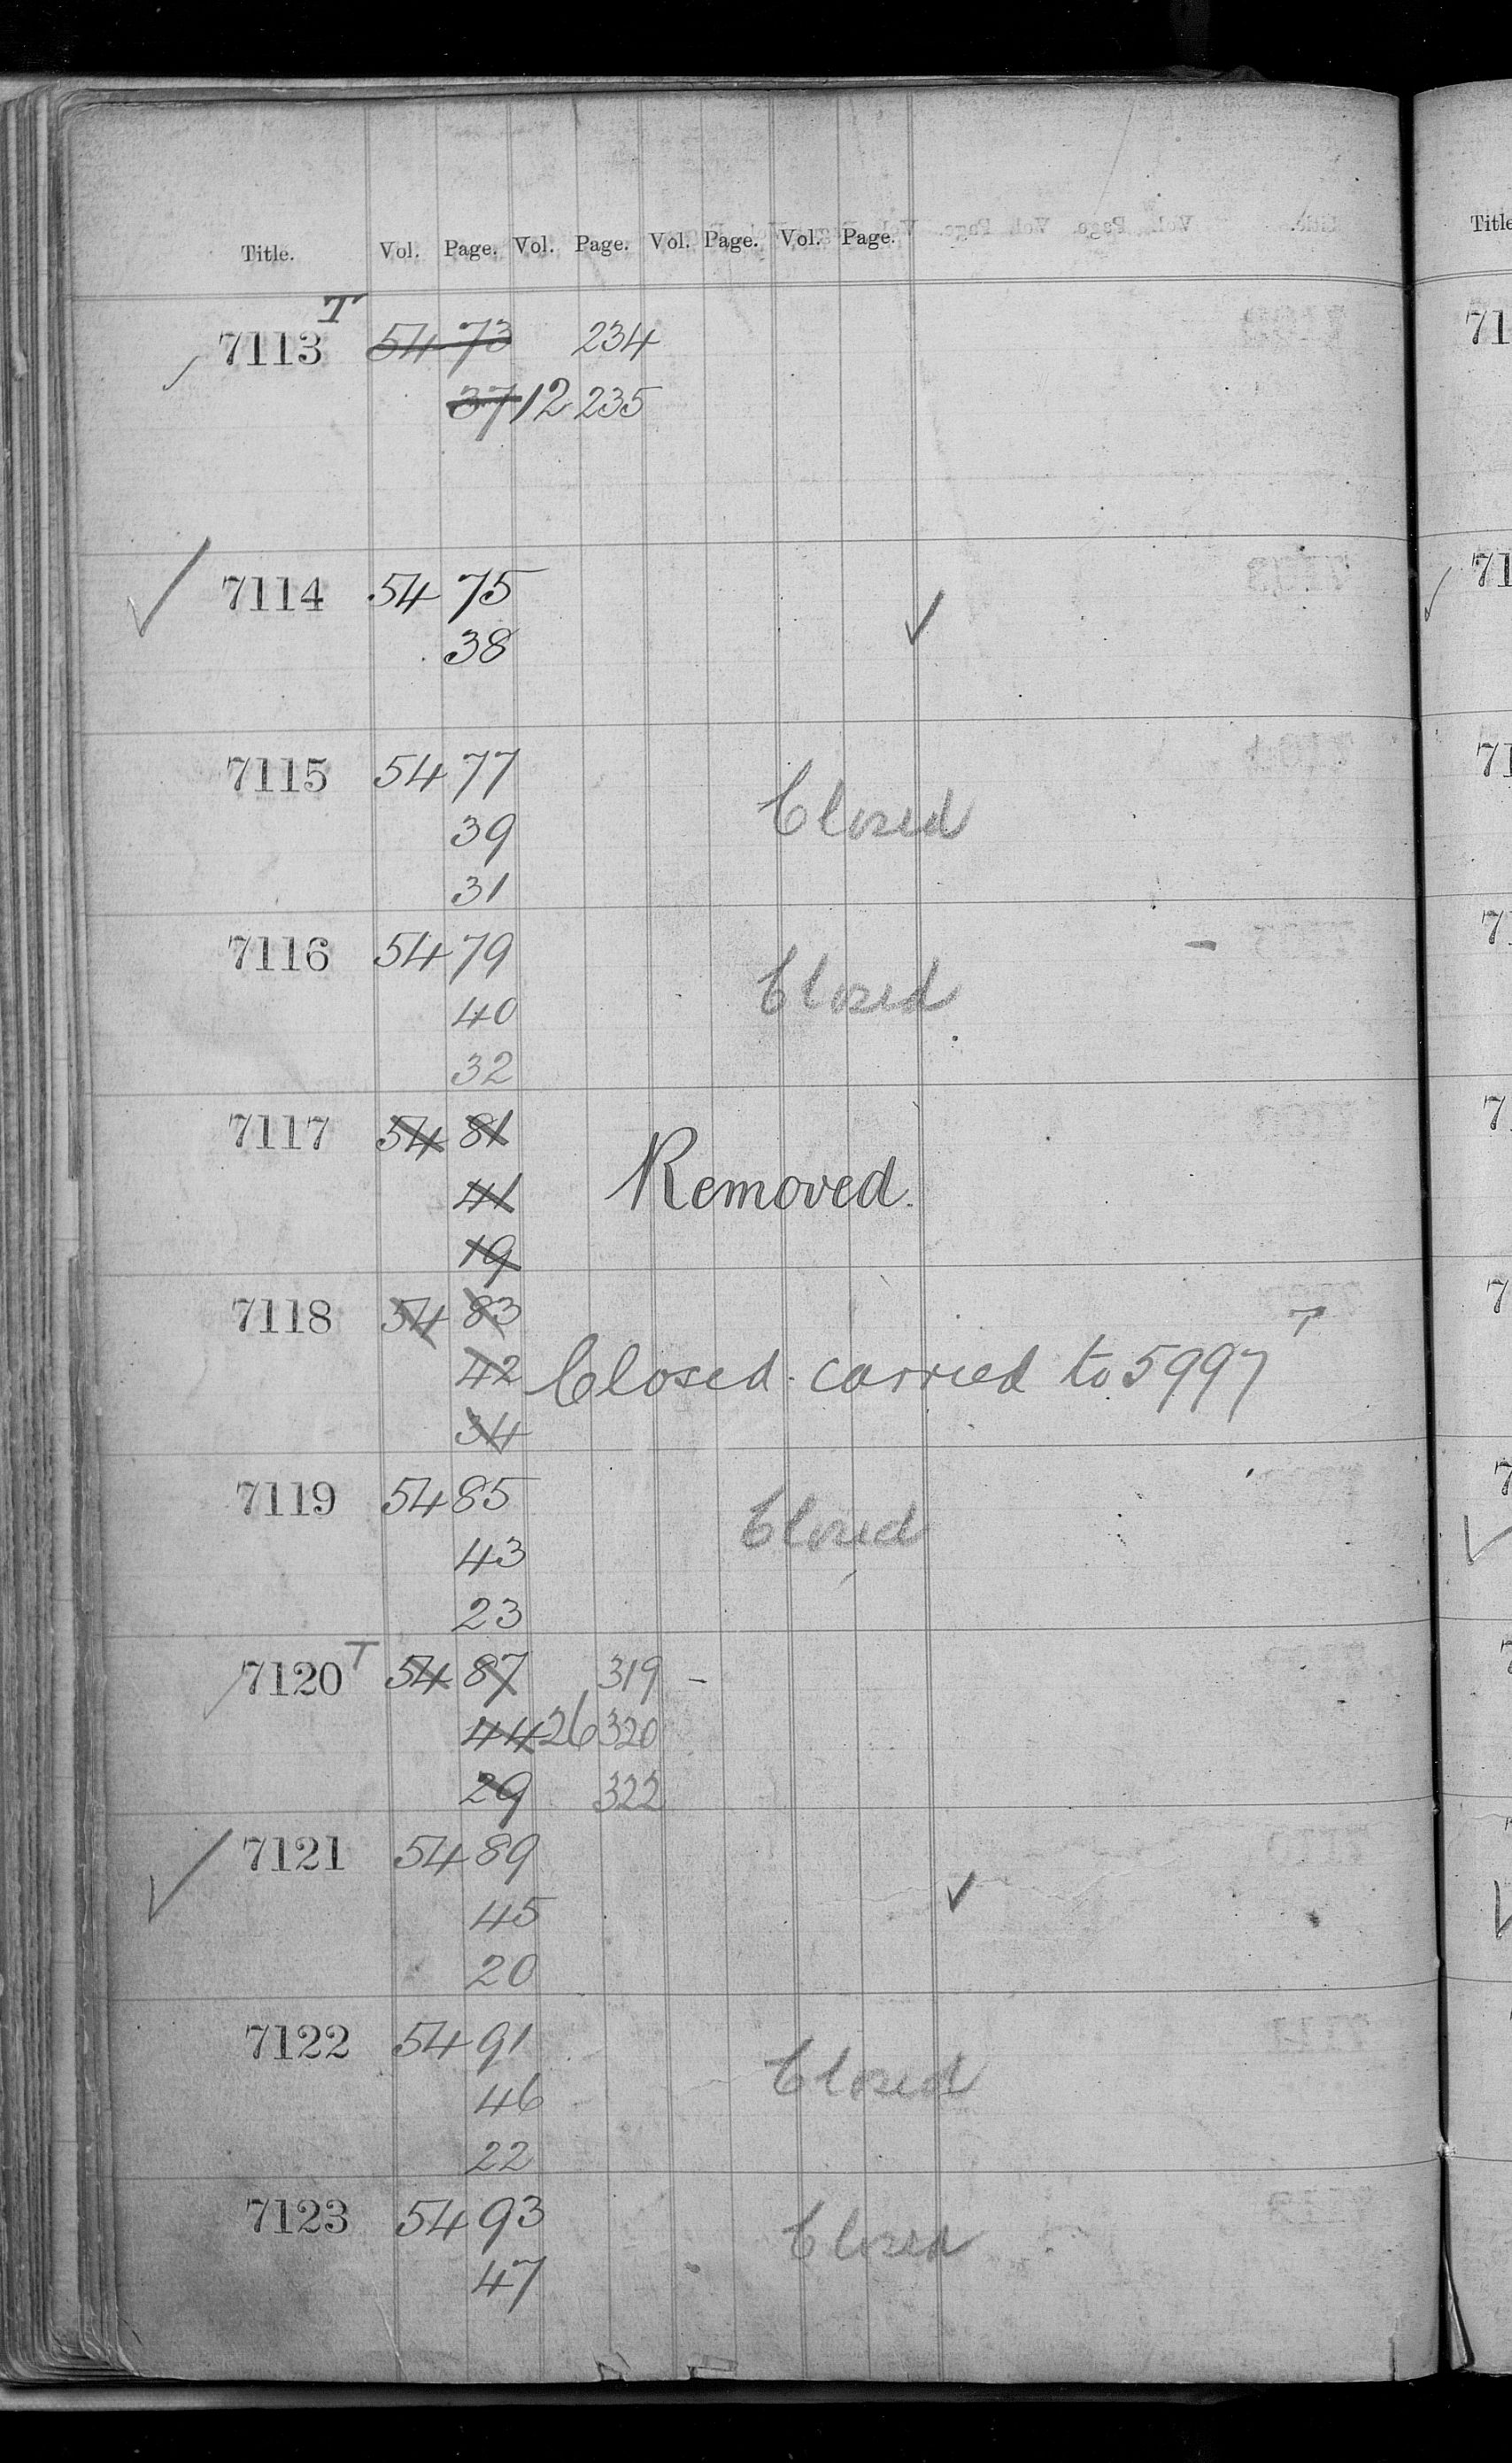 Title. Vol. Page. Vol. Page. Vol. Page. Vol. Page.
7113 T 54 73 234
37 12 235
7114 54 75
38
7115 54 77
Closed
39
31
7116 54 79
Closed
40
32
7117 54 81
41 Removed.
19
7118 54 83
42 Closed. carried to 5997 T
34
7119 54 85
Closed
43
23
7120 T 54 87 319 -
44 26 320
29 322
7121 54 89
45
20
7122 54 91
Closed
46
22
7123 54 93
Closed
47